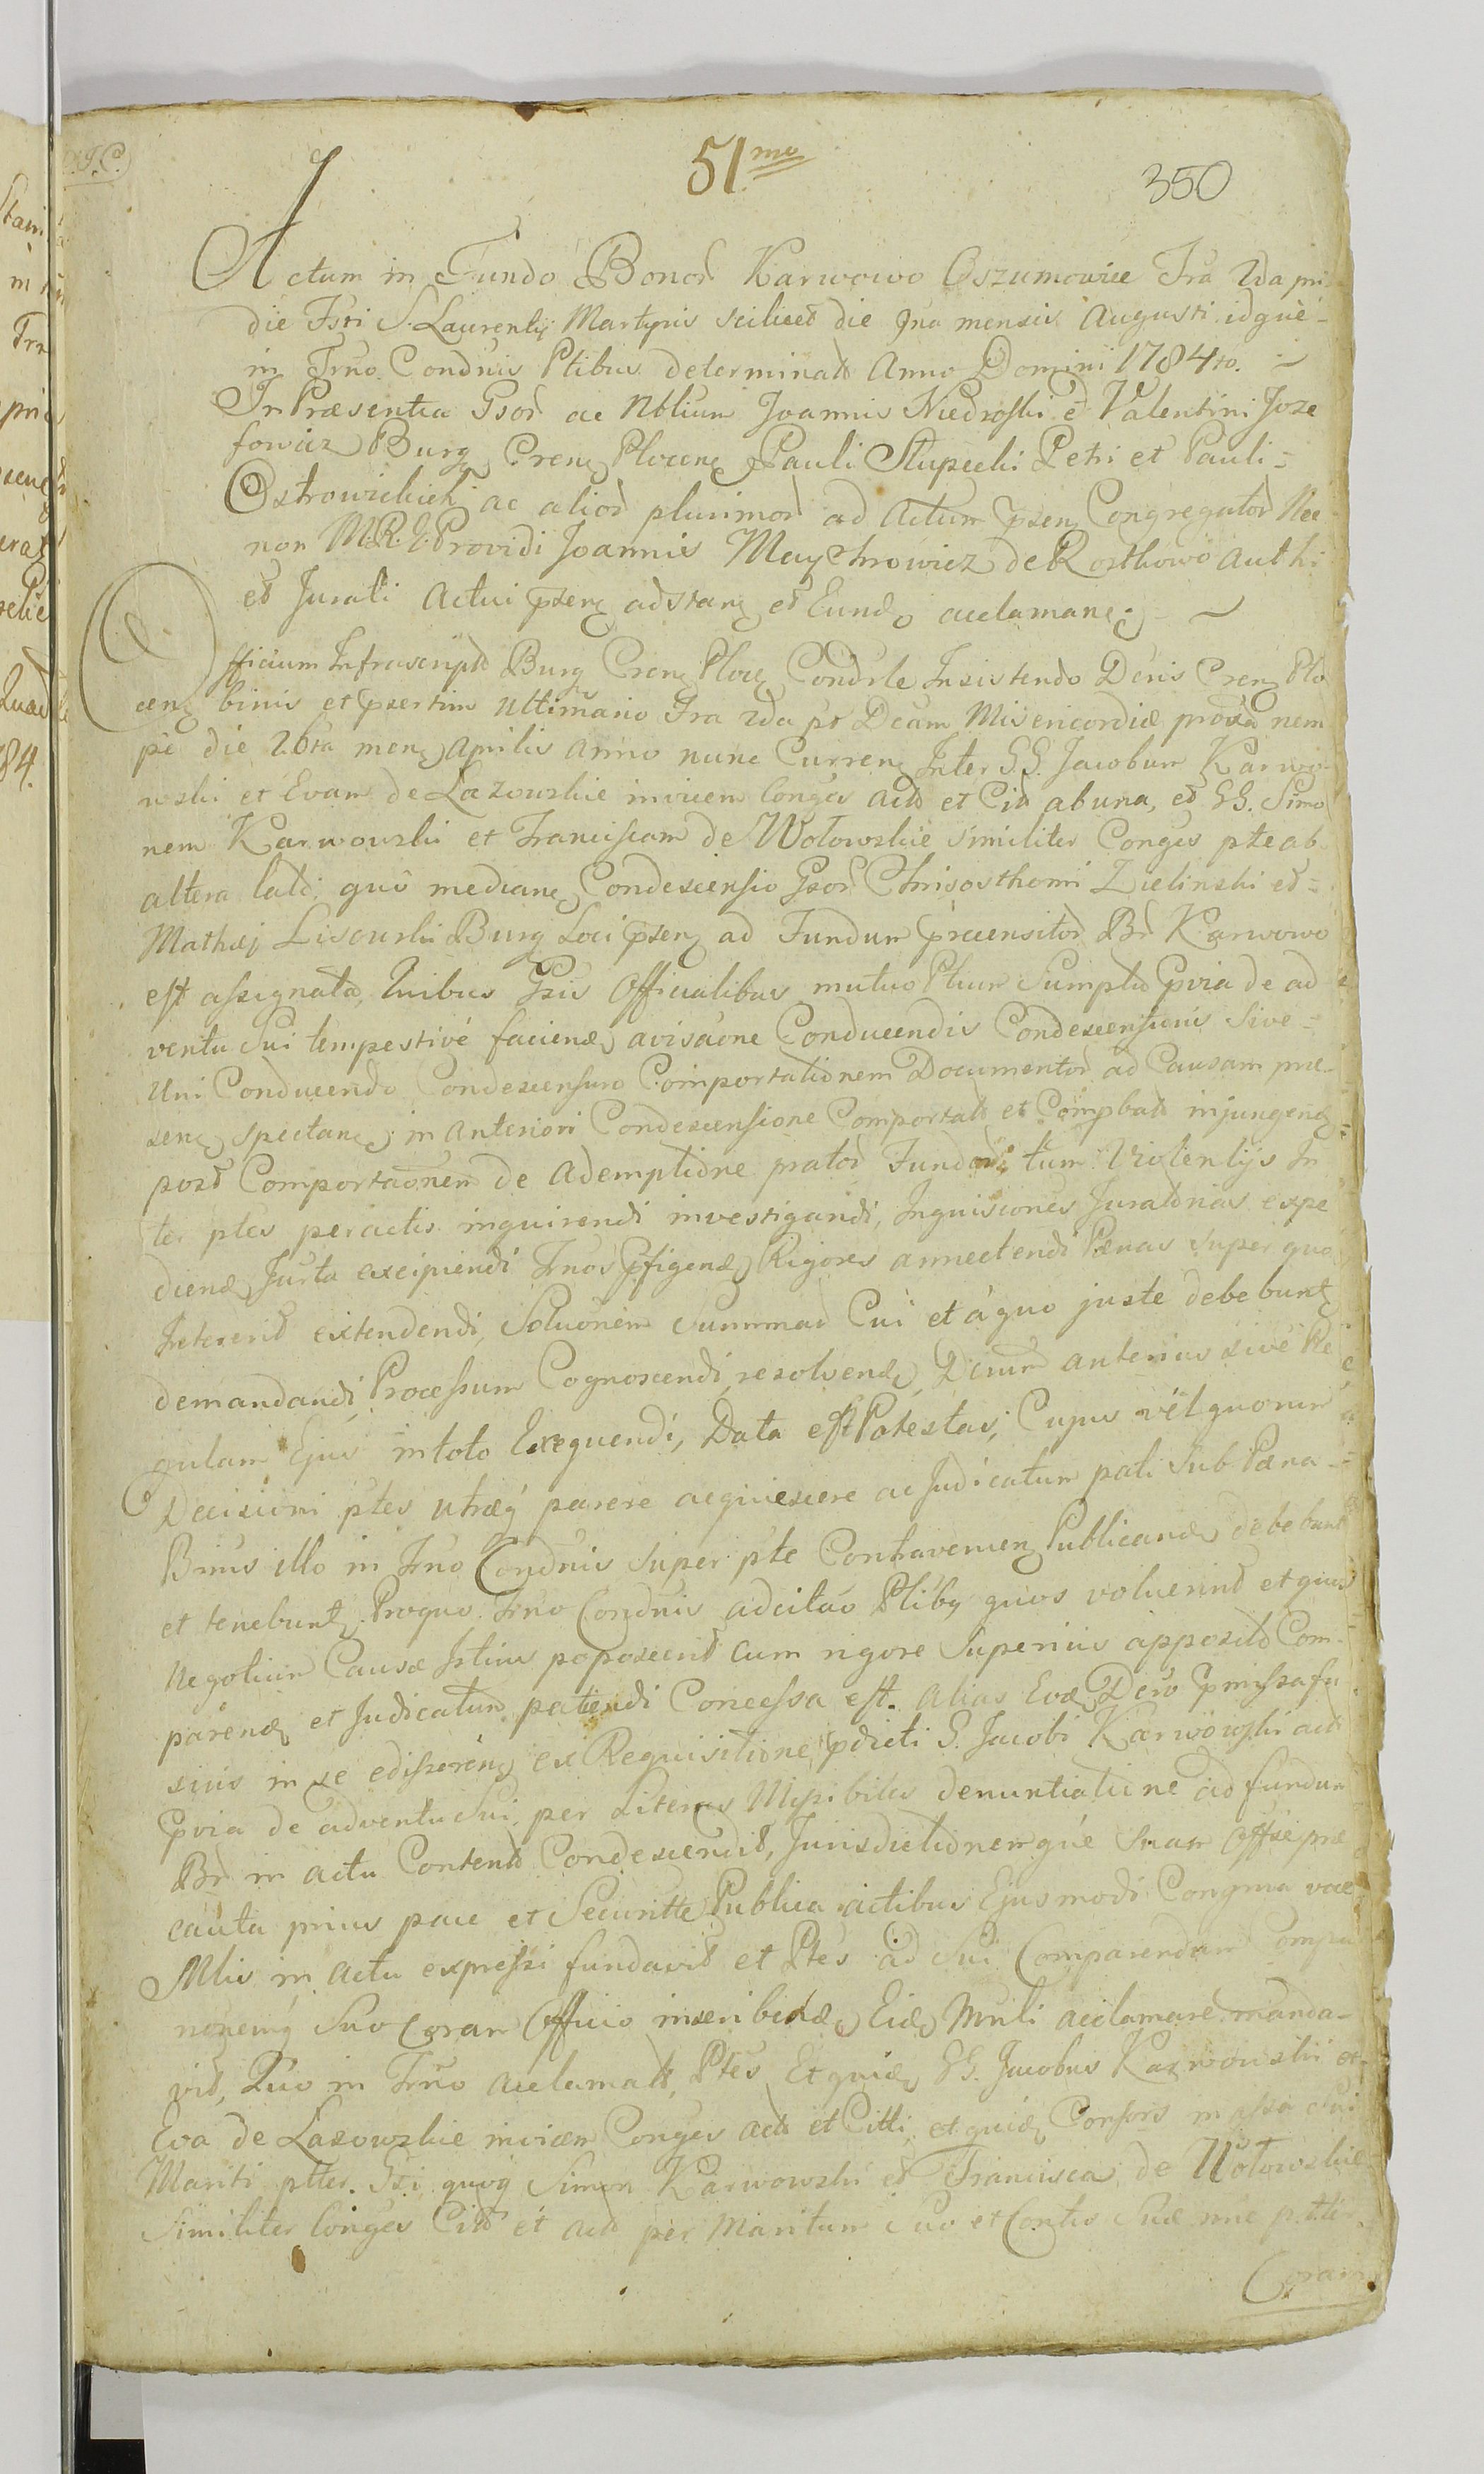 51.mo
350
Actum in Fundo Bonor Karwowo Oszumowice Fra 2da pri
die Fsti S. Laurentij Martyris scilicet die 9na mensis Augusti idquè
in Trno Condnis Ptibus determinato Anno Domini 1784to.
In Præsentia Gsor ac Nblium Joannis Niedroski et Valentini Joze
fowicz Burg Cren Plocen Pauli Słupecki Petri et Pauli
Ostrowickich ac alior plurimor ad Actum psen Congregator Nec
non M.R.G. Providi Joannis Maychrowicz de Rostkowo Auth
et Jurati Actui psen adstan et Eund acclaman
Officium Infrascript Burg Cren Ploc Condrle Insistendo Decris Cren Plo
cen binis et psertim Ultimario Fra 2da pt Dcam Misericordiæ proxa nem
pè die 26ta men Aprilis anno nunc Curren Inter GG. Jacobum Karwo
wski et Evam de Lazowskie invicem Conges Acto et Cit ab una, et GG. Simo
nem Karwowski et Franciscam de Wołowskie similiter Conges pte ab
altera lato quo median Condescensio Gsor Chrisosthomi Zielinski et
Mathæj Lisowski Burg Loci psen ad Fundum præcensitor Br Karwowo
est assignata, Quibus Gsis Officialibus mutuo Ptium Sumptu pvia de ad
ventu Sui tempestivé faciend avisaone Conducendis Condescensuris sive
Uni Conducendo Condescensuro Comportationem Documentor ad Causam præ
sen spectan in anteriori Condescensione Comportat et Compbat injungend
post Comportaonem de Ademptione prator Fundor tum Violentijs In
ter ptes peractis inquirendi investigandi, Inquisiones Juratorias expe
diend Jurta excipiendi Trnos pfigend Rigores annectendi Pænas super quo
Intererit extendendi, Soluonem Summar Cui et à quo juste debebunt
demandandi Processum Cognoscendi resolvend Dcrum anterius sive Re
gulam Ejus in toto Exequendi, Data est Potestas, Cujus vel quorum
Decisioni ptes utræq parere acquiescere ac Judicatum pati Sub Pæna
Bnnis illo in Trno Condnis super pte Contravenien Publicand debebunt
et tenebunt. Proquo Trno Condnis adcitao Ptibq quos voluerint et quos
Negotium Causæ Istius poposcerit cum rigore Superius apposito Com
parend et Judicatum patiendi Concessa est. Alias Evd Dcro pmissa fu
sius in se edisseren ex Requisitione pdicti G. Jacobi Karwowski acti
pvia de adventu Sui per Literas Missibiles denuntiatiune ad fundum
Br in actu Content Condescendit, Jurisdictionemque suam Offse præ
cauta prius pace et Securitte Publica actibus Ejusmodi Congrua voce
Mlis in Actu expressi fundavit et Ptes ad Sui Comparendum
Suo Coram Officio inscribend Eid Mnli acclamare manda-
vit, Quo in Trno acclamato, Ptes Etquid GG. Jacobus Karwowski et
Eva de Lazowskie invicem Conges acti et Citti et quid Consors in assa Sui
Mariti ptter. Gsi quoq Simon Karwowski et Francisca de Wołowskie
Similiter Conges Citi et acti per Maritum Suo et Contis Suæ nne ptter
Coram